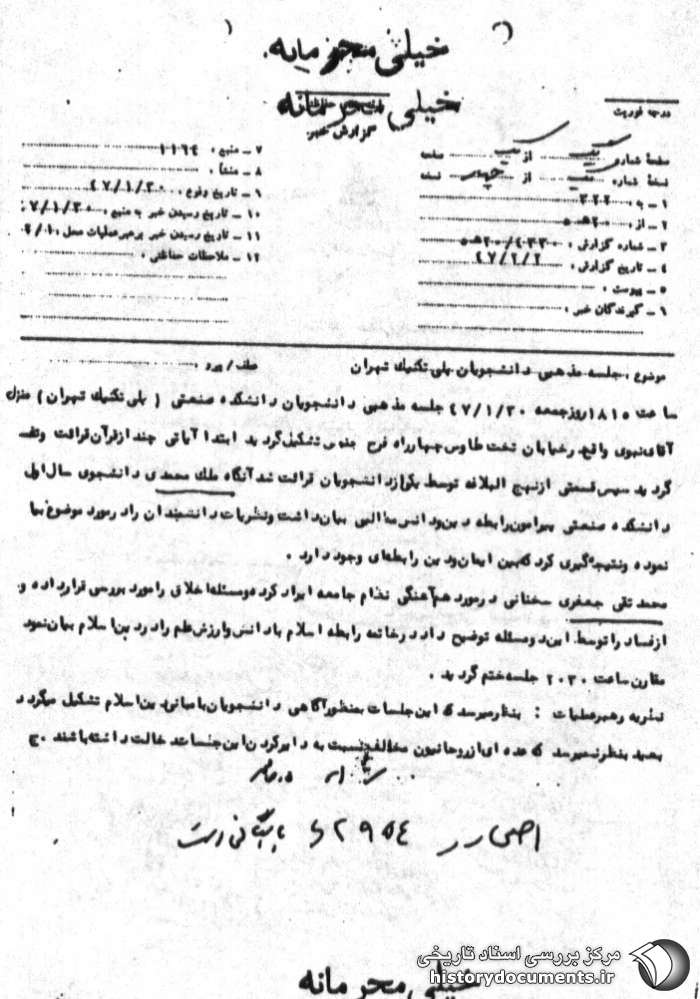 خیلی محرمانه
خیلی محرمانه
گزارش خبر
درجه فوریت
صفحه شماره یک از یک صفحه
نسخه شماره از چهار نسخه
۱ - به ۳۲۲
۲ - از ۲۰ ه ۵
۳ - شماره گزارش ۲۰/۴۳۳۰ ه ۵
۴ - تاریخ گزارش ۴۷/۲/۲
۵ - پیوست
۶ - گیرندگان خبر
۷ - منبع ۱۱۶۴
۸ - منشأ
۹ - تاریخ وقوع ۴۷/۱/۳۰
۱۰ - تاریخ رسیدن خبر به منبع ۷/۱/۳۰
۱۱ - تاریخ رسیدن خبر به رهبر عملیات محل
۱۲ - ملاحظات حفاظتی
موضوع : جلسه مذهبی دانشجویان پلی تکنیک تهران
عطف / پیرو
ساعت ۱۸۱۵ روز جمعه ۴۷/۱/۳۰ جلسه مذهبی دانشجویان دانشکده صنعتی ( پلی تکنیک تهران ) منزل
آقای نبوی واقع در خیابان تخت طاوس چهارراه فرح جنوبی تشکیل گردید ابتدا آیاتی چند از قرآن قرائت و تفسـ
گردید سپس قسمتی از نهج البلاغه توسط یکی از دانشجویان قرائت شد آنگاه ملک محمدی دانشجوی سال اول
دانشکده صنعتی پیرامون رابطه دین و دانس مطالبی بیان داشت و نظریات دانشمندان را در مورد موضوع بیا
نموده و نتیجه گیری کرد که بین ایمان و دین رابطه ای وجود دارد .
محمد تقی جعفری سخنانی در مورد هم آهنگی نظام جامعه ایراد کرد و مسئله اخلاق را مورد بررسی قرار داده و
از فساد را توسط این دو مسئله توضیح داد در خاتمه رابطه اسلام با دانس و ارزش علم را در دین اسلام بیان نمود
مقارن ساعت ۲۰۳۰ جلسه ختم گردید .
نظریه رهبر عملیات : بنظر میرسد که این جلسات بمنظور آگاهی دانشجویان با مبانی دین اسلام تشکیل میگردد و
بعید بنظر نمیرسد که عده ای از روحانیون مخالف نسبت به دایر کردن این جلسات دخالت داشته باشند . ج
اصل در ۲۹۵۴ بایگانی است
مرکز بررسی اسناد تاریخی
historydocuments.ir
خیلی محرمانه